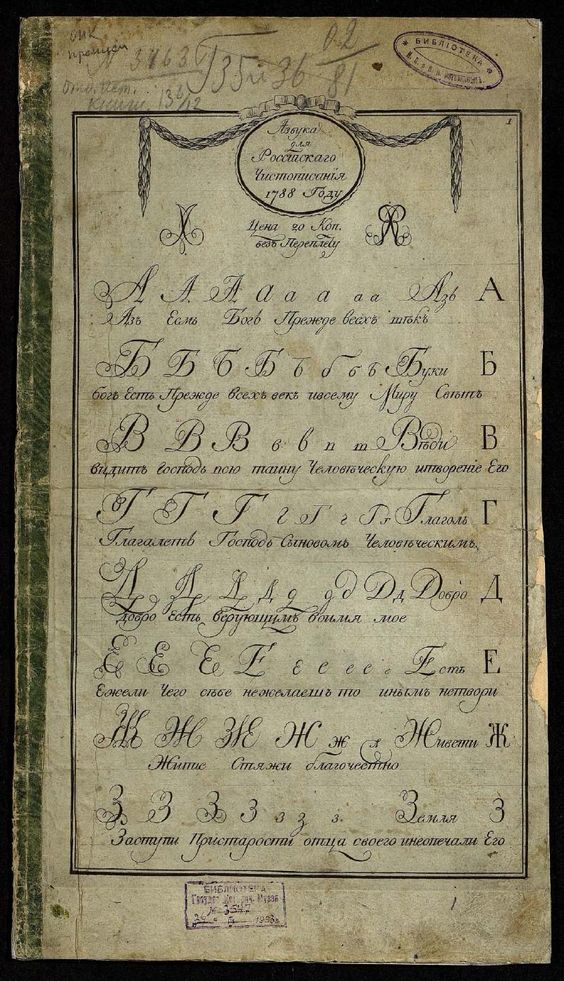 3763
35
36
81
БИБЛІОТЕКА
1
Азбука
для
Россїйскаго
Чистописанїя
1788 Году
Цена 20 Коп.
безъ Переплету
А А А а а а а а Азъ А
Азъ Есмь Богъ Прежде всехъ
Б Б Б Б Б б б ъ Буки Б
богъ Есть Прежде всехъ векъ ивсему Миру Светъ
В В В в в п т Вѣди В
видитъ господь всю таину Человѣческую итворенїе Его
Г Г Г г Г г Гг Глаголь Г
Глаголетъ Господь Сыновомъ Человѣческимъ,
Д Д Д Д д д д Дд Добро Д
добро Есть верующимъ воимя мое
Е Е Е Е е е е е Есть Е
Ежели Чего себе нежелаешъ то инымъ нетвори
Ж Ж Ж Ж ж Живети Ж
Житие Стяжи благочестно
З З З З з з з Земля З
Заступи Пристарости отца своего инеопечали Его
БИБЛИОТЕКА
Музея
№ 3547
1